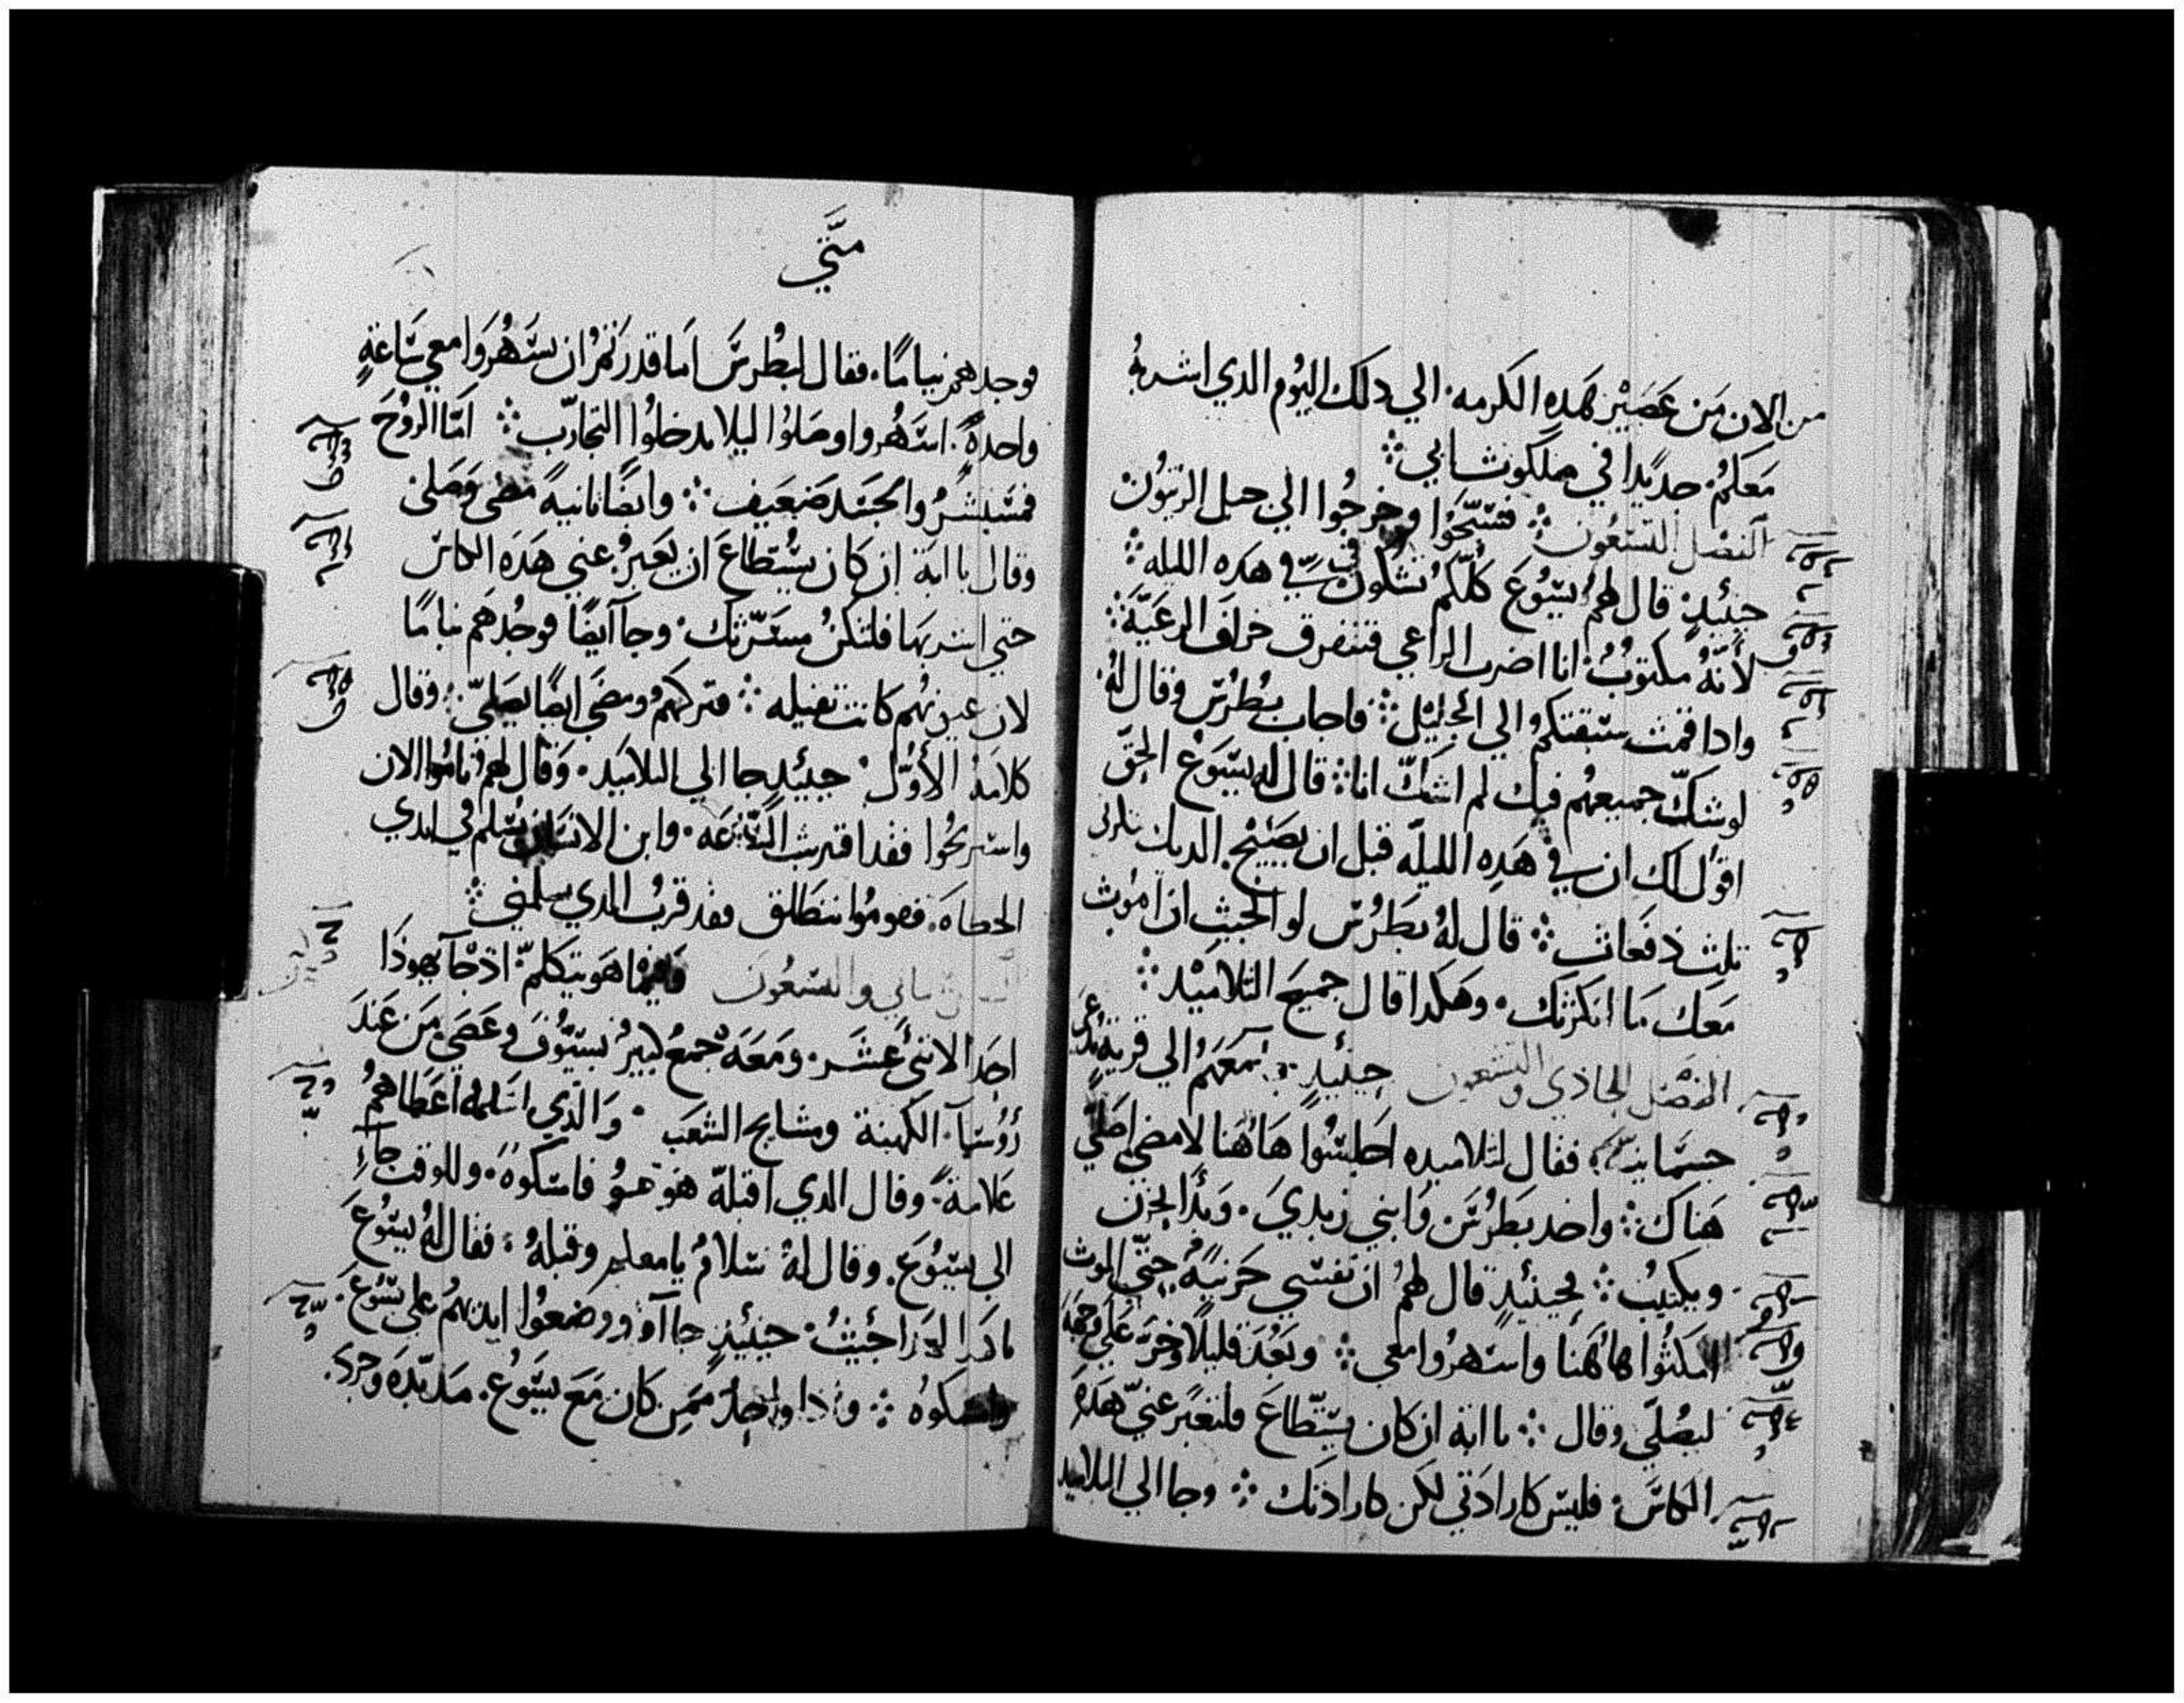 من الان من عَصَيْر هَده الكرمه. الي دلك اليُوم الدي اشربهُ
مَعَكمُ. جديدًا في ملكوت ابي ܀
الفصل التسعُون ܀ فسَبَّحَوُا وخرجُوا الي جبل الزيتُون
حينيدٍ قال لهمُ يسُوُع كلّكمُ تشكون فى في هده الليله ܀
لأنّهُ مكتوُبُ. انا اضرب الراعي فتتفرق خراف الرعَيّةَ ܀
وادا قمت سَبقتكموُ الي الجليْل ܀ فاجاب بُطرُس وقال لهُ.
لو شكّ جميعهُم فيك لم اشكّ انا ܀ قال له يسَوُع الحقَّ
اقوُل لك ان في هَدِه الليلَه قبل ان يصَيْح الديك تنكرنى
تلث دفعَات ܀ قال لهُ بطَرُس لو الجيت ان امُوت
مَعَك مَا انكرتك. وهَكدا قال جميعَ التلاميْد ܀
الفصْل الحادي والتسَعون حينيدٍ جا معَهمُ الي قرية تدعى
جسَمانيه. فقال لتلاميده اجَلسُوا هَاهُنا لامضي اصَلي
هَناك ܀ واخد بَطرُسَ وَابني زبدي. وَبدأ يحزن
ويكتيبُ ܀ حينيدٍ قال لهمُ ان نفسي حَزينهَ حتّي الموت
امكثوُا هاهُنا واسهرُوا معي ܀ وبَعُدَ قليلًا وخرَّ علي وجهَه
ليصُلّي وقال ܀ يا ابة ان كان يستّطاعَ فلتعبَر عنيّ هَده
الكاسَ. فليس كارادَتي لكن كارادتك ܀ وجا الي التلاميد
متَّي
فوجدهم نيامًا. فقال لبطُرسَ اما قدرتمُ ان تسَهرُوَا معي سَاعةٍ
واحدةً. اسَهُروا وصَلوُا ليلا تدخلوُا التجارّب ܀ امّا الروُحَ
فمسَتبشرُ والجسَد ضعَيف ܀ وايضًا تانيةً مضى وصَلى
وقال يا ابة ان كان يسُتطاعَ ان يَعَبرُ عني هَدَه الكاسَ
حتي اشربهَا فلتكنُ مسَرّتك. وجا ايضًا فوجُدهَم نيامًا
لان عيونُهُم كانت تقيله ܀ فتركهُم ومضَي ايضًا يصَليّ. وقال
كلامهُ الأوّل. حينيدٍ جا الي التلاميَد. وَقال لهمُ ناموُا الان
واسَتريحُوا فقد اقتربت السّاعَه. وابن الانسَان يسُلم في ايدي
الخطاهَ. قوموُا ننطَلق فقد قربُ الدي يسلمني ܀
الثاني والتسعُون فبينما هَو يتكلمّ اد جَا يهودَا
احدَ الاتنيْ عشَر. ومَعَهَ جمعُ كبيرُ بسيُوُف وعَصَي مَن عَندَ
رؤسَآ الكَهنة ومشايخ الشعَب. وَالدي اسَلمه اعَطاهمُ
عَلامةً وقال الدي اقبلهّ هَو هَوُ فامسَكوهَ. وللوقت جاَء
الي يسَوُعَ. وقال لهُ سَلامُ يا معلم وقبلهُ. فقال لهُ يسَوُعَ
يا هَدا لهَدا جئيتُ. حينيدٍ جاآو ووضعوُا ايديهمُ علي يسُوعَ.
وامسَكوُه ܀ وادا واحدٌ ممَن كان مَعَ يسَوُع. مَد يدّه وجرد